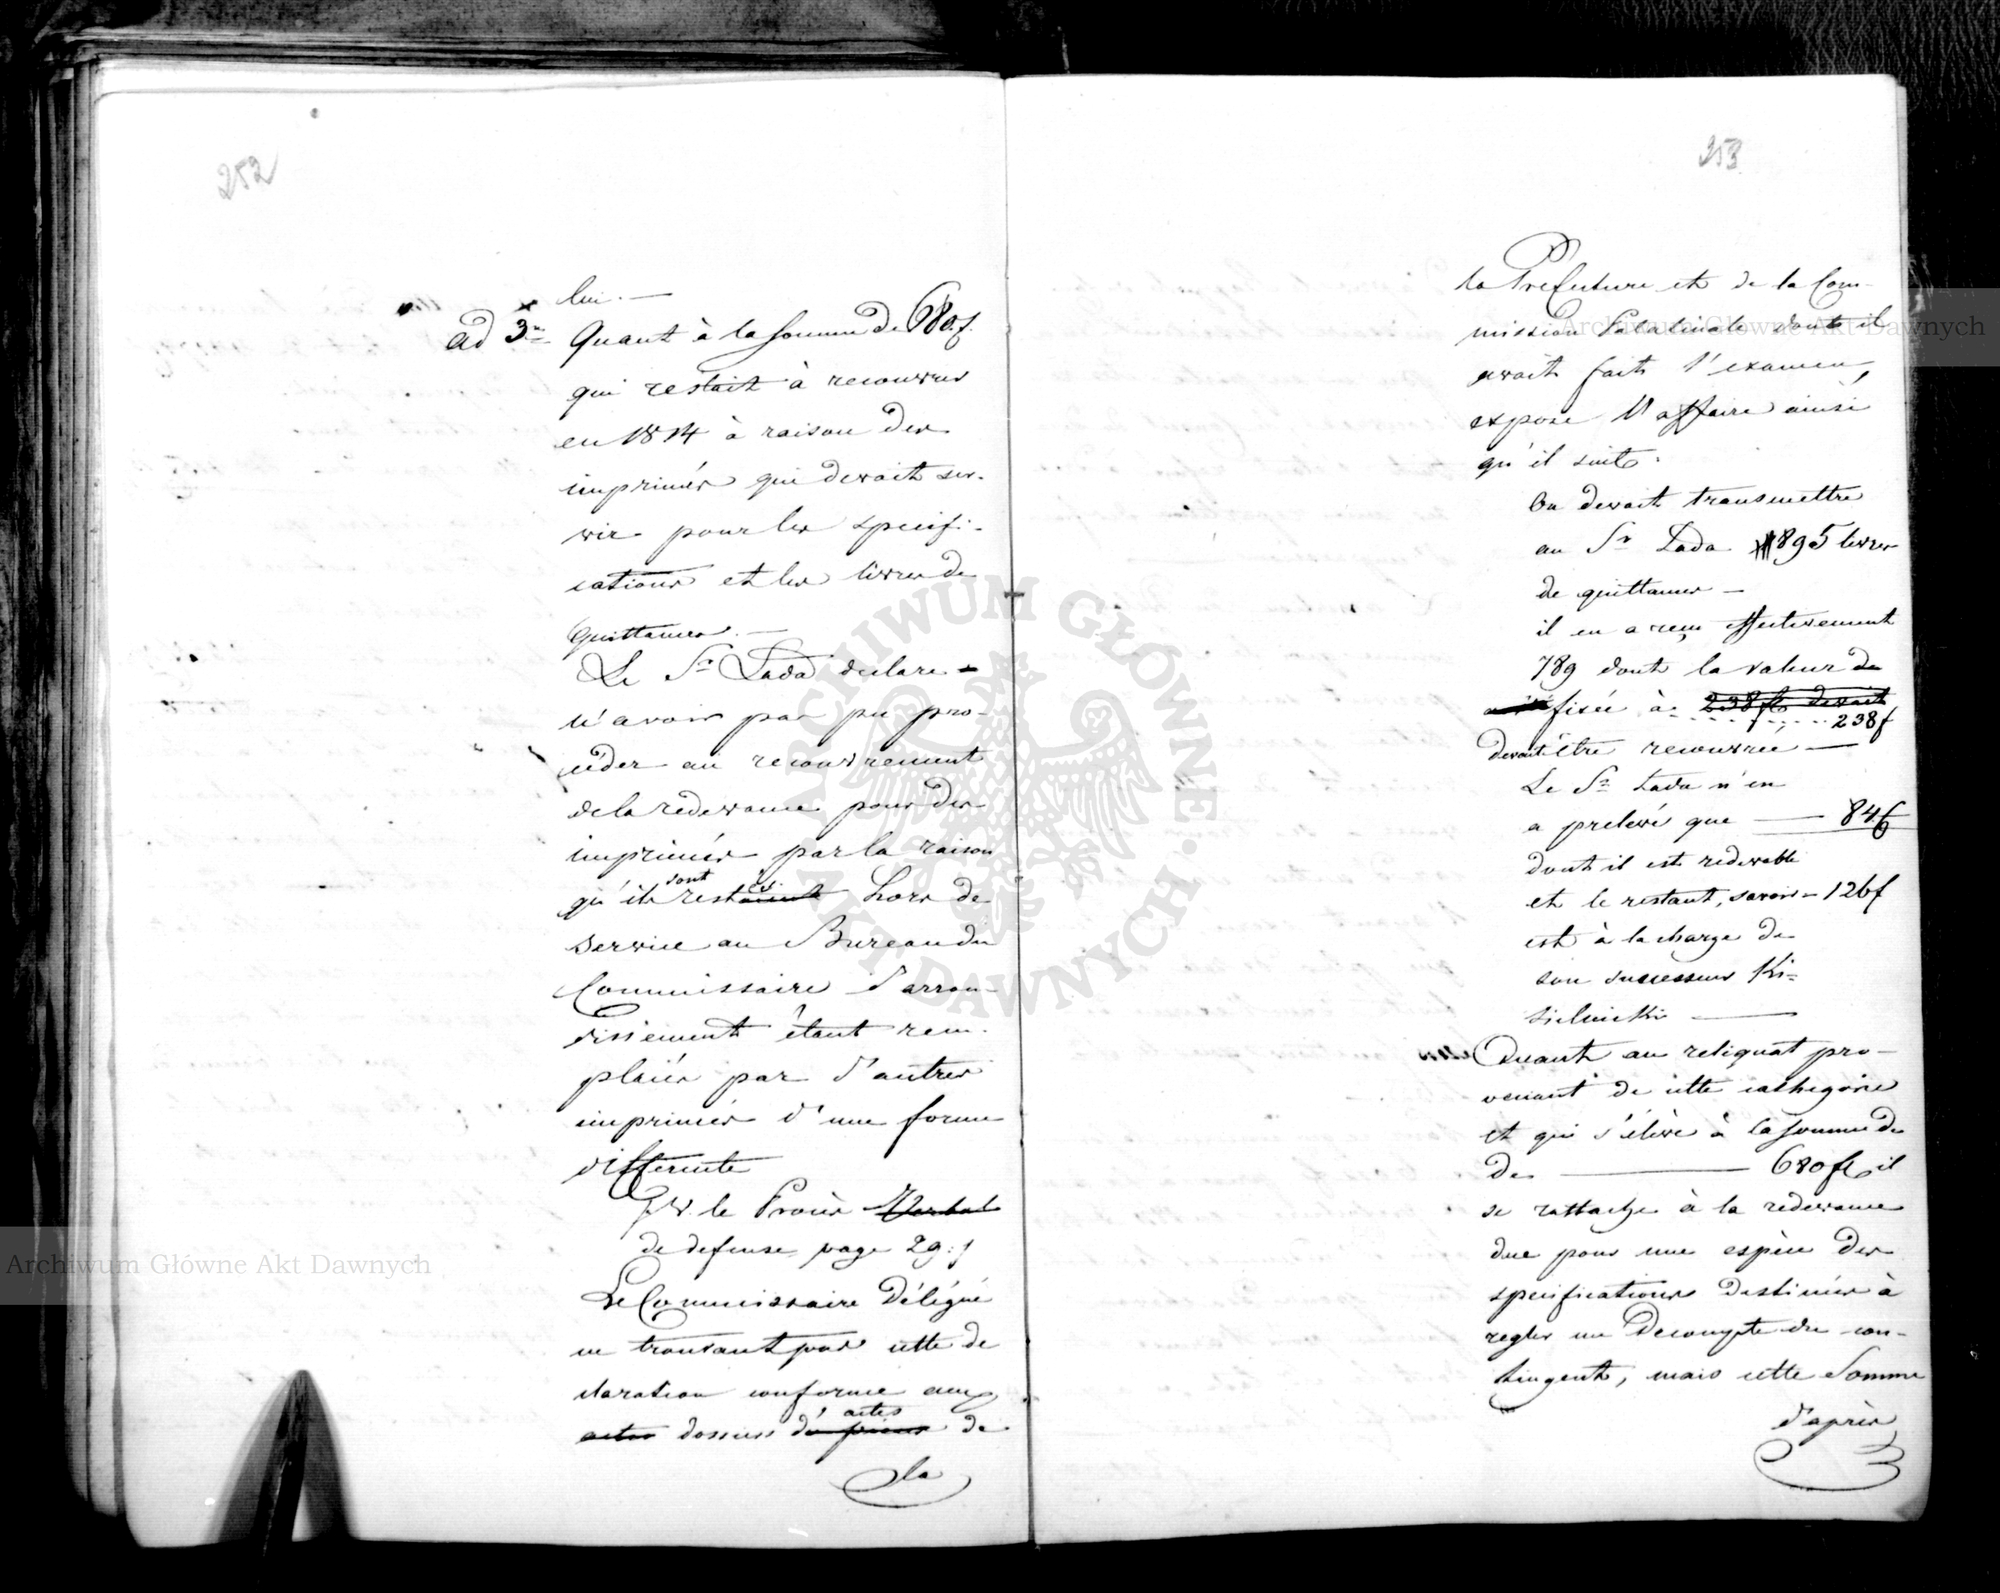 252
lui. —
ad 3m Quant à la somme de 680 f.
qui restait à recouvrer
en 1814 à raison des
imprimés qui devait ser-
vir pour les specifi-
cations et les livres de
Quittances. —
Le Sr Lada declare
n'avoir pas pu pro-
céder au recouvrement
de la redevance pour des
imprimés par la raison
qu'ils sont restés hors de
service au Bureau du
Commissaire d'arron-
dissement étant rem-
placés par d'autres
imprimés d'une forme
differente
le Procès Verbal
de defense page 29.
Le Commissaire Délégué
ne trouvant pas cette de
claration conforme aux
actes dossiers d'actes de
la
253
la Prefecture et de la Com-
mission Palatinale dont il
avait fait l'examen,
expose l'affaire ainsi
qu'il suit.
On devait transmettre
au Sr Lada 895 livres
de quittances —
il en a reçu effectivement
789 dont la valeur de
fixée à 238 fl devait
238 f
devait être recouvrée —
Le Sr Lada n'en
a prelevé que — 84 f
dont il est redevable
et le restant, savoir — 126 f
est à la charge de
son successeur Ki=
sielnicki —
Quant au reliquat pro-
venant de cette cathegorie
et qui s'élève à la somme de
de — 680 fl il
se rattache à la redevance
due pour une espèce des
specifications destinées à
regler un Decompte du con-
tingent, mais cette Somme
d'après
Archiwum Główne Akt Dawnych
Archiwum Główne Akt Dawnych
ARCHIWUM GŁÓWNE AKT DAWNYCH